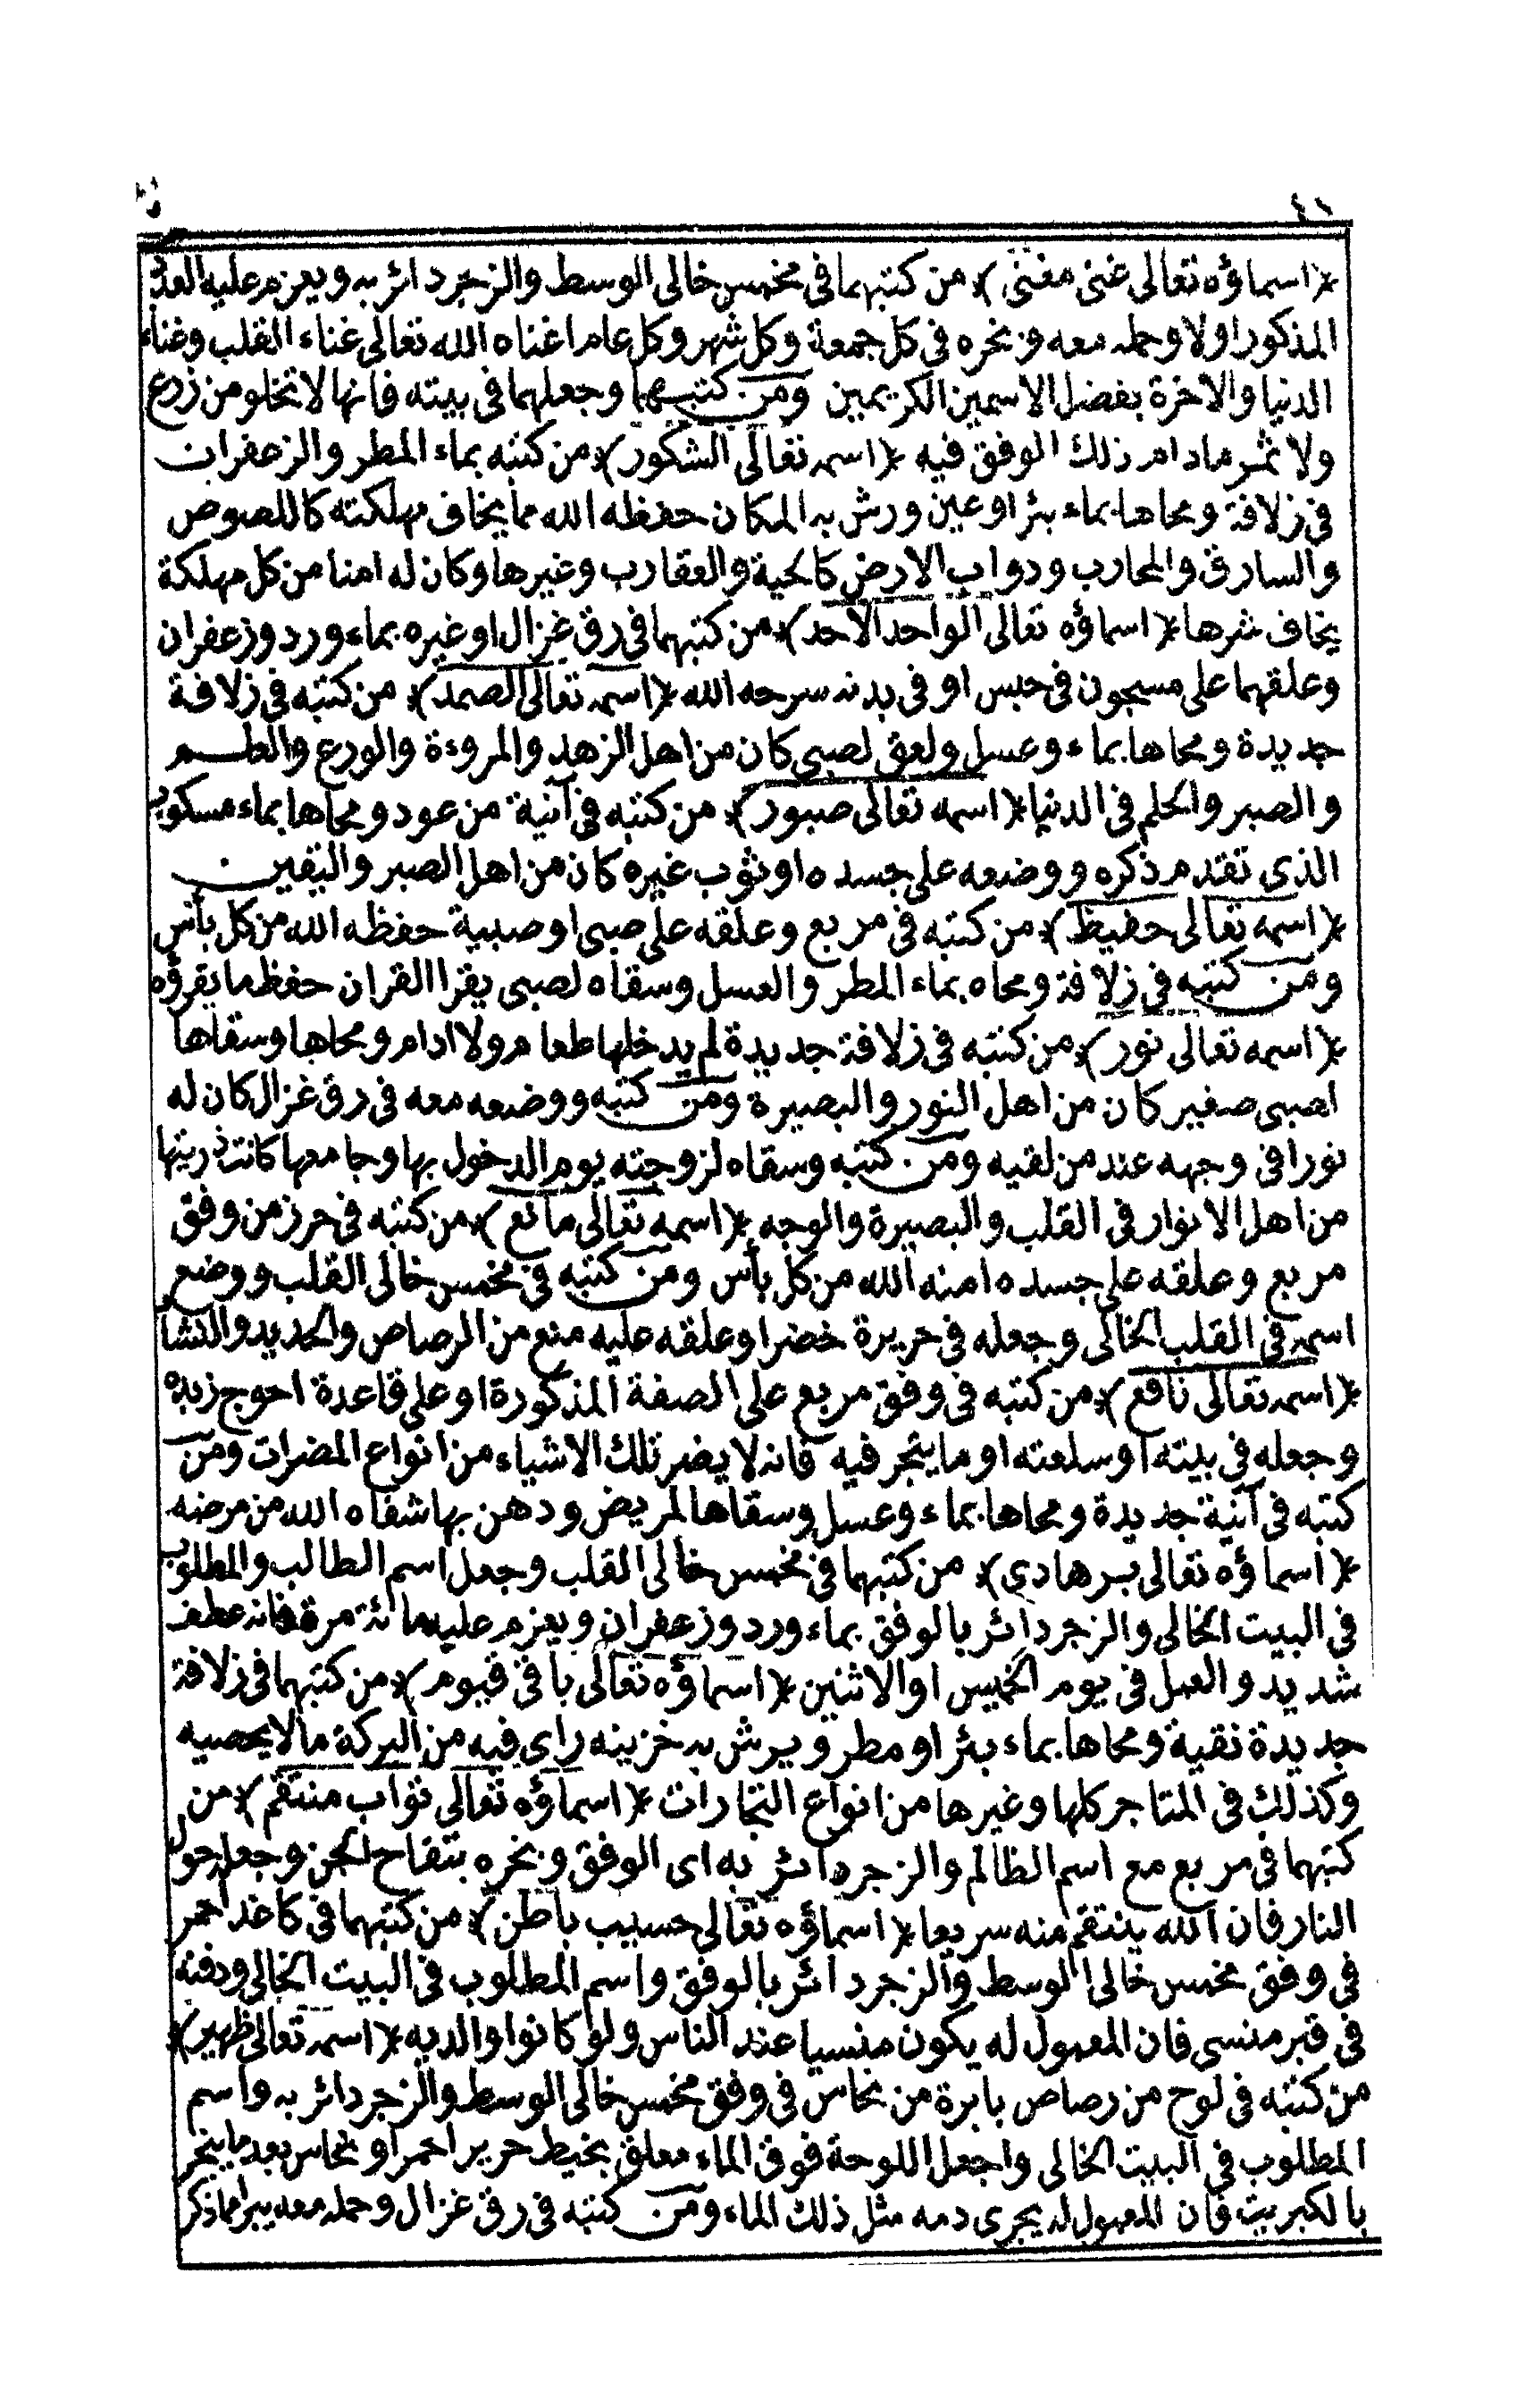 ٤٦
﴿اسماؤه تعالى غنى مغنى﴾ من كتبهما فى مخمس خالى الوسط والزجر دائر به ويعزم عليه العدد
المذكور اولا وحمله معه وبخره فى كل جمعة وكل شهر وكل عام اغناه الله تعالى غناء القلب وغناء
الدنيا والاخرة بفضل الاسمين الكريمين ومن كتبهما وجعلهما فى بيته فانها لا تخلو من زرع
ولا ثمر مادام ذلك الوفق فيه ﴿اسمه تعالى الشكور﴾ من كتبه بماء المطر والزعفران
فى زلافة ومحاها بماء بئر او عين ورش به المكان حفظه الله مما يخاف مهلكته كاللصوص
والسارق والمحارب ودواب الارض كالحية والعقارب وغيرها وكان له امنا من كل مهلكة
يخاف شرها ﴿اسماؤه تعالى الواحد الاحد﴾ من كتبهما فى رق غزال او غيره بماء ورد وزعفران
وعلقهما على مسجون فى حبس او فى بدنه سرحه الله ﴿اسمه تعالى الصمد﴾ من كتبه فى زلافة
جديدة ومحاها بماء وعسل ولعق لصبى كان من اهل الزهد والمروءة والورع والعلم
والصبر والحلم فى الدنيا ﴿اسمه تعالى صبور﴾ من كتبه فى آنية من عود ومحاها بماء مسكوب
الذى تقدم ذكره ووضعه على جسده او ثوب غيره كان من اهل الصبر واليقين
﴿اسمه تعالى حفيظ﴾ من كتبه فى مربع وعلقه على صبى او صبية حفظه الله من كل بأس
ومن كتبه فى زلافة ومحاه بماء المطر والعسل وسقاه لصبى يقرا القران حفظ ما يقرؤه
﴿اسمه تعالى نور﴾ من كتبه فى زلافة جديدة لم يدخلها طعام ولا ادام ومحاها وسقاها
لصبى صغير كان من اهل النور والبصيرة ومن كتبه ووضعه معه فى رق غزال كان له
نورا فى وجهه عند من لقيه ومن كتبه وسقاه لزوجته يوم الدخول بها وجامعها كانت ذريتها
من اهل الانوار فى القلب والبصيرة والوجه ﴿اسمه تعالى مانع﴾ من كتبه فى حرز من وفق
مربع وعلقه على جسده امنه الله من كل بأس ومن كتبه فى مخمس خالى القلب ووضع
اسمه فى القلب الخالى وجعله فى حريرة خضرا وعلقه عليه منع من الرصاص والحديد والنشاب
﴿اسمه تعالى نافع﴾ من كتبه فى وفق مربع على الصفة المذكورة او على قاعدة احوج زبده
وجعله فى بيته او سلعته او ما يتجر فيه فانه لا يضر تلك الاشياء من انواع المضرات ومن
كتبه فى آنية جديدة ومحاها بماء وعسل وسقاها لمريض ودهن بها شفاه الله من مرضه
﴿اسماؤه تعالى بر هادي﴾ من كتبهما فى مخمس خالى القلب وجعل اسم الطالب والمطلوب
فى البيت الخالى والزجر دائر بالوفق بماء ورد وزعفران ويعزم عليه مائة مرة فانه عطف
شديد والعمل فى يوم الخميس او الاثنين ﴿اسماؤه تعالى باقى قيوم﴾ من كتبهما فى زلافة
جديدة نقية ومحاها بماء بئر او مطر ويرش به خزينه راى فيه من البركة ما لا يحصيه
وكذلك فى المتاجر كلها وغيرها من انواع التجارات ﴿اسماؤه تعالى تواب منتقم﴾ من
كتبهما فى مربع مع اسم الظالم والزجر دائر به اى الوفق وبخره بتفاح الجن وجعله حول
النار فان الله ينتقم منه سريعا ﴿اسماؤه تعالى حسيب باطن﴾ من كتبهما فى كاغد احمر
فى وفق مخمس خالى الوسط والزجر دائر بالوفق واسم المطلوب فى البيت الخالى ودفنه
فى قبر منسى فان المعمول له يكون منسيا عند الناس ولو كانوا والديه ﴿اسمه تعالى ظهير﴾
من كتبه فى لوح من رصاص بابرة من نحاس فى وفق مخمس خالى الوسط والزجر دائر به واسم
المطلوب فى البيت الخالى واجعل اللوحة فوق الماء معلق بخيط حرير احمر او نحاس بعد ما يبخر
بالكبريت فان المعمول له يجرى دمه مثل ذلك الماء ومن كتبه فى رق غزال وحمله معه يبرا مما ذكر